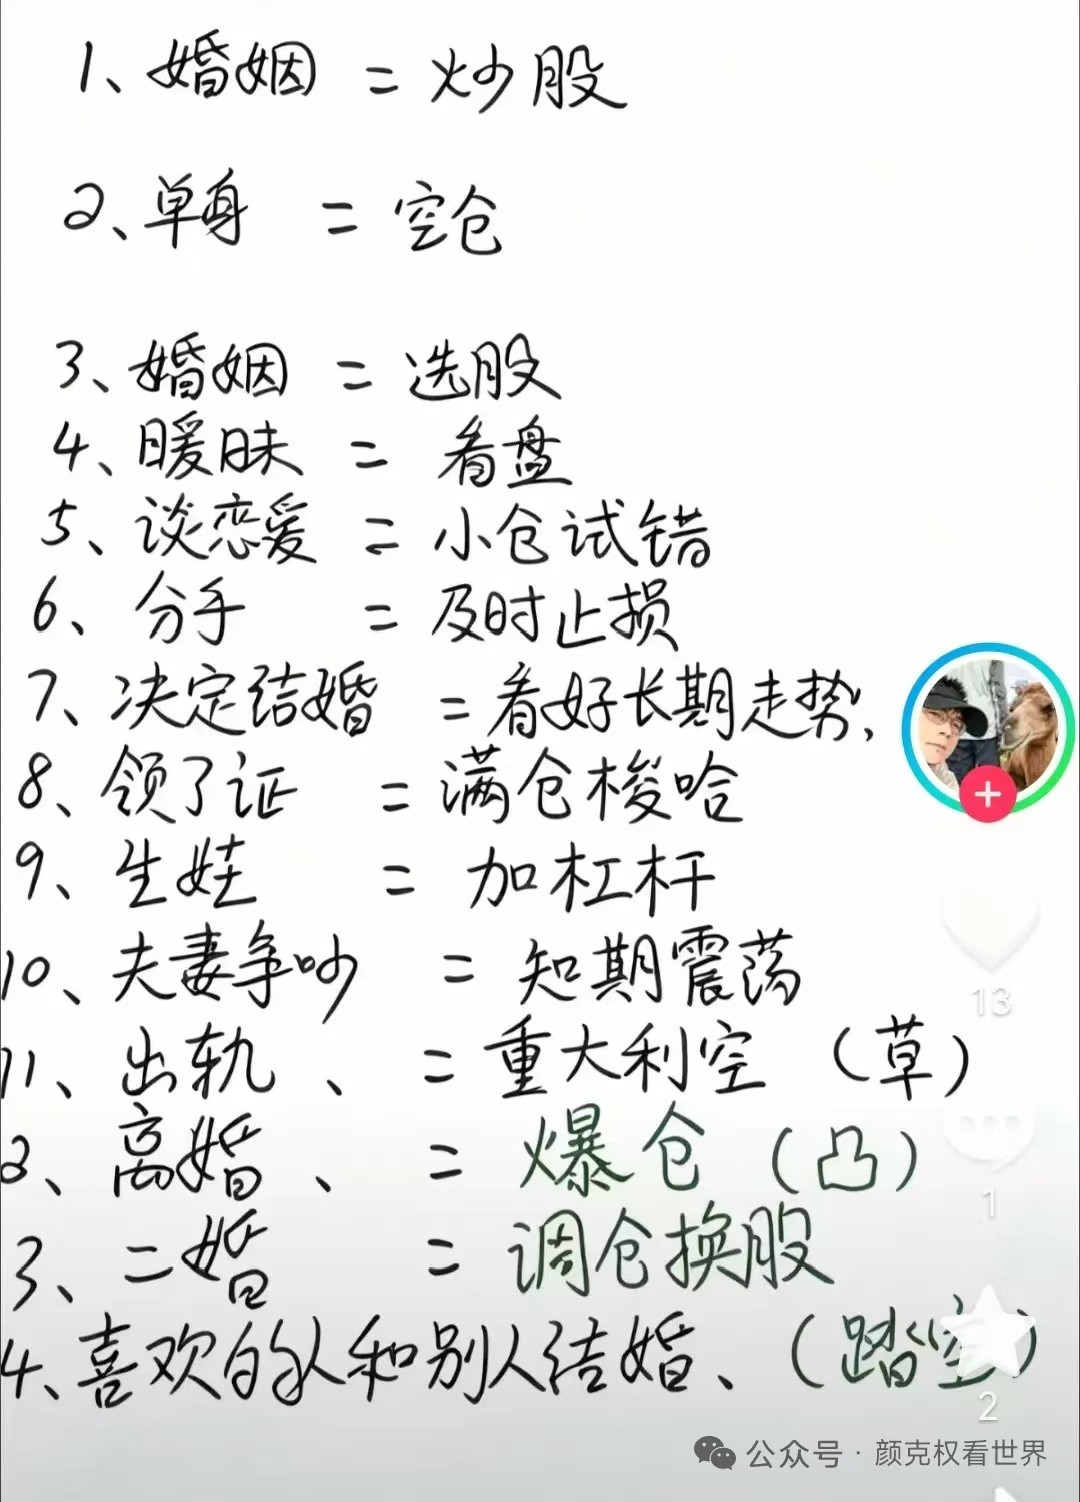 1、婚姻 = 炒股
2、单身 = 空仓
3、婚姻 = 选股
4、暖昧 = 看盘
5、谈恋爱 = 小仓试错
6、分手 = 及时止损
7、决定结婚 = 看好长期走势、
8、领了证 = 满仓梭哈
9、生娃 = 加杠杆
10、夫妻争吵 = 短期震荡
11、出轨、 = 重大利空（草）
2、离婚、 = 爆仓（凸）
3、二婚 = 调仓换股
4、喜欢的人和别人结婚、（踏空）
13
1
2
公众号·颜克权看世界